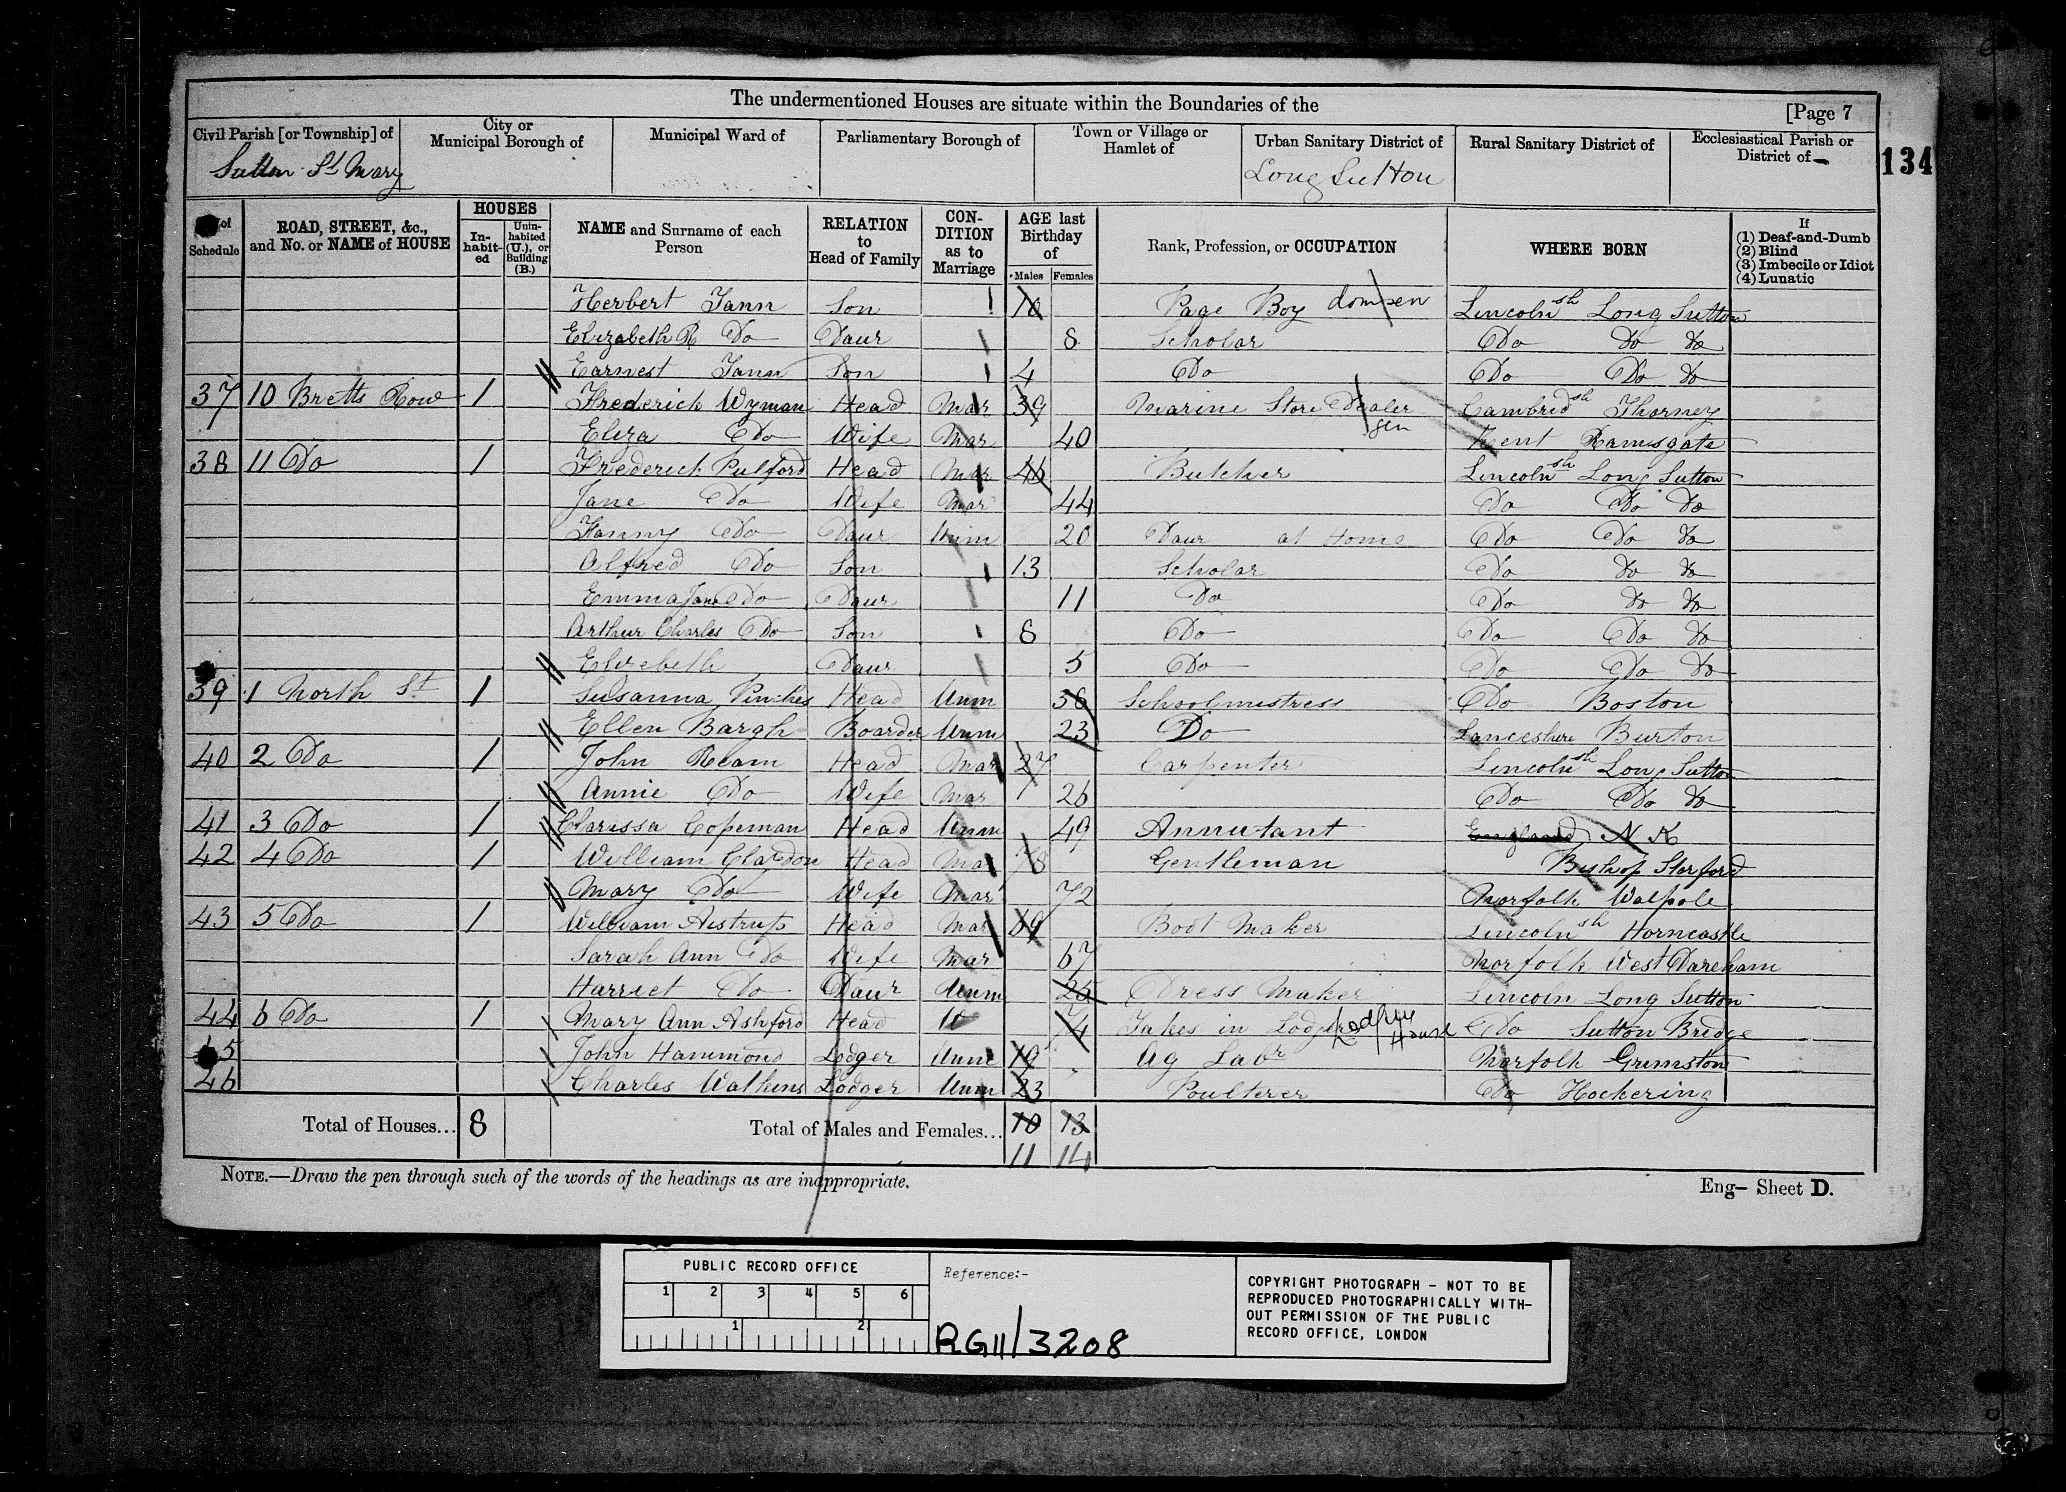 The undermentioned Houses are situate within the Boundaries of the
[Page 7
Civil Parish [or Township] of
City or Municipal Borough of
Municipal Ward of
Parliamentary Borough of
Town or Village or Hamlet of
Urban Sanitary District of
Rural Sanitary District of
Ecclesiastical Parish or District of
Sutton St Mary
Long Sutton
134
of Schedule
ROAD, STREET, &c., and No. or NAME of HOUSE
HOUSES
In-habit-ed
Unin-habited (U.), or Building (B.)
NAME and Surname of each Person
RELATION to Head of Family
CON-DITION as to Marriage
AGE last Birthday of
Males Females
Rank, Profession, or OCCUPATION
WHERE BORN
If
(1) Deaf-and-Dumb
(2) Blind
(3) Imbecile or Idiot
(4) Lunatic
Herbert Son Page Boy Lincolnsh Long Sutton
Elizabeth R Do Daur 8 Scholar Do Do Do
Earnest Son 4 Do Do Do Do
37 10 Bretts Row 1 Frederick Wyman Head Mar 39 Marine Store Dealer gen Cambridsh Thorney
Eliza Do Wife Mar 40 Kent Ramsgate
38 11 Do 1 Frederick Pulford Head Mar 46 Butcher Lincolnsh Long Sutton
Jane Do Wife Mar 44 Do Do Do
Fanny Do Daur Unm 20 Daur at Home Do Do Do
Alfred Do Son 13 Scholar Do Do Do
Emma Jane Do Daur 11 Do Do Do Do
Arthur Charles Do Son 8 Do Do Do Do
Elizebeth Daur 5 Do Do Do Do
39 1 North St 1 Susanna Head Unm 36 Schoolmistress Do Boston
Ellen Bargh Boarder Unm 23 Do Lanceshire Burton
40 2 Do 1 John Ream Head Mar 27 Carpenter Lincolnsh Long Sutton
Annie Do Wife Mar 26 Do Do Do
41 3 Do 1 Clarissa Copeman Head Unm 49 Annutant England N K
42 4 Do 1 William Head Mar 78 Gentleman Bishop Storford
Mary Do Wife Mar 72 Norfolk Walpole
43 5 Do 1 William Aistrup Head Mar 69 Boot Maker Lincolnsh Horncastle
Sarah Ann Do Wife Mar 67 Norfolk West Dareham
Harriet Do Daur Unm 25 Dress Maker Lincoln Long Sutton
44 6 Do 1 Mary Ann Ashford Head W 74 Takes in Lodgers House Do Sutton Bridge
45 John Hammond Lodger Unm 19 Ag Labr Norfolk Grimston
46 Charles Watkins Lodger Unm 23 Poulterer Do Hockering
Total of Houses... 8
Total of Males and Females... 10 13
11 14
NOTE.—Draw the pen through such of the words of the headings as are inappropriate.
Eng– Sheet D.
PUBLIC RECORD OFFICE
1 2 3 4 5 6
1 2
Reference:-
RG11/3208
COPYRIGHT PHOTOGRAPH – NOT TO BE
REPRODUCED PHOTOGRAPHICALLY WITH-
OUT PERMISSION OF THE PUBLIC
RECORD OFFICE, LONDON